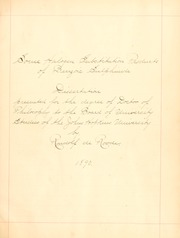 Some Halogen Substitution Products
of Benzyl Sulphide
Dissertation
presented for the degree of Doctor of
Philosophy to the Board of University
Studies of the Johns Hopkins University
by
de Roode
1892